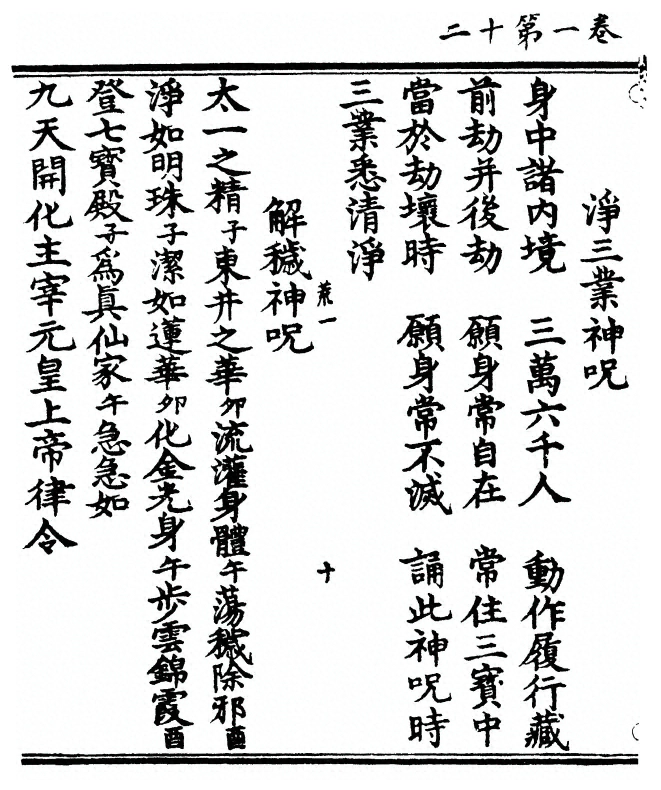 卷一第十二
淨三業神呪
身中諸內境　三萬六千人　動作履行藏
前劫并後劫　願身常自在　常住三寶中
當於劫壞時　願身常不滅　誦此神呪時
三業悉清淨
荒一　十
解穢神呪
太一之精子東井之華卯流灌身體午蕩穢除邪酉
淨如明珠子潔如蓮華卯化金光身午步雲錦霞酉
登七寶殿子為真仙家午急急如
九天開化主宰元皇上帝律令